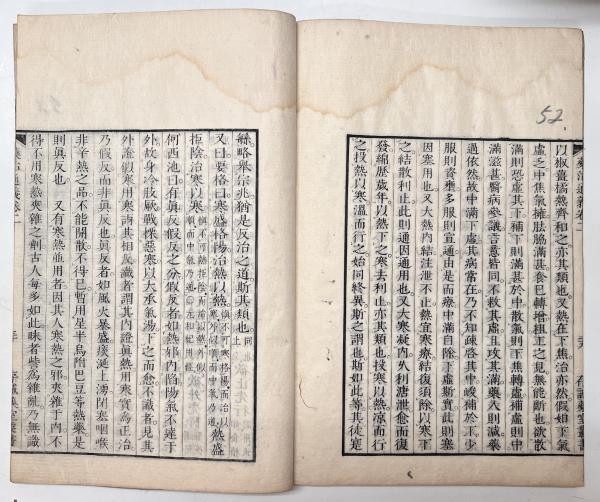 52
藥治通義卷二
存誠藥室叢書
以椒薑橘熱齊和之亦其類也又熱在下焦治亦然假如下氣
虛乏中焦氣擁胠脇滿甚食已轉增粗工之見無能斷也欲散
滿則恐虛其下補下則滿甚於中散氣則下焦轉虛補虛則中
滿滋甚醫病參議言意皆同不救其虛且攻其滿藥入則減藥
過依然故中滿下虛其病常在乃不知疏啓其中峻補於下少
服則資壅多服則宣通由是而療中滿自除下虛斯實此則塞
因塞用也又大熱內結注泄不止熱宜寒療結復須除以寒下
之結散利止此則通因通用也又大寒凝內久利溏泄愈而復
發綿歷歲年以熱下之寒去利止亦其類也投寒以熱涼而行
之投熱以寒溫而行之始同終異斯之謂也斯如此等其徒寔
繁略舉宗兆猶是反治之道斯其類也同上
又曰要格曰寒盛格陽治熱以熱熱盛
拒陰治寒以寒
何西池曰有眞假反之分假反者如熱邪內陷陽氣不達于
外故身冷肢厥戰慄惡寒以大承氣湯下之而愈不識者見其
外證假寒用寒謂其相反識者謂其內證眞熱用寒實爲正治
乃假反而非眞反也眞反者如風火暴盛痰涎上湧閉塞咽喉
非辛熱之品不能開散不得已暫用星半烏附巴豆等熱藥是
則眞反也　又有寒熱並用者因其人寒熱之邪夾雜于內不
得不用寒熱夾雜之劑古人每多如此昧者訾爲雜亂乃無識
藥治通義卷二
存誠藥室叢書